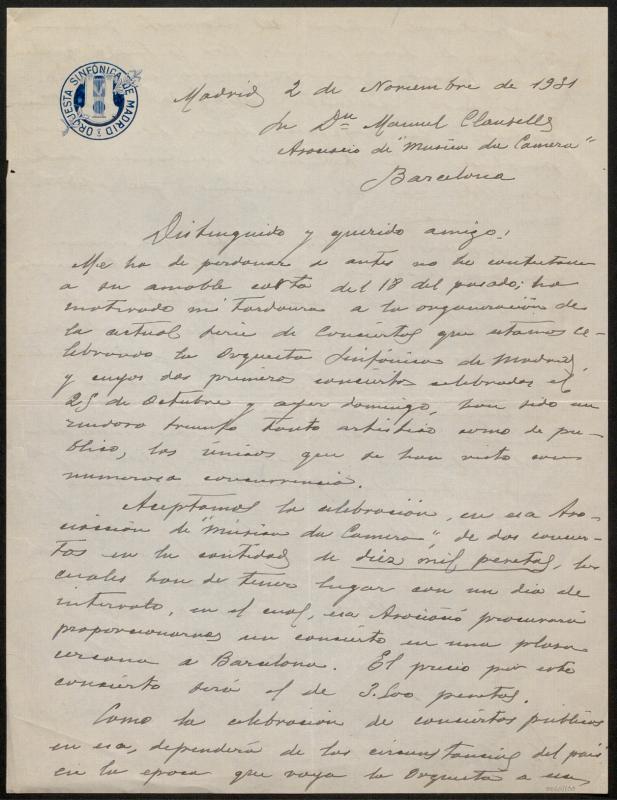 ORQUESTA SINFÓNICA DE MADRID
Madrid 2 de Noviembre de 1931
Sr Dn Manuel Clausells
Asociació de "Musica da Camera"
Barcelona
Distinguido y querido amigo:
Me ha de perdonar si antes no he contestado
a su amable carta del 18 del pasado; ha
motivado mi tardanza a la organización de
la actual serie de Conciertos que estamos ce-
lebrando la Orquesta Sinfónica de Madrid,
y cuyos dos primeros conciertos celebrados el
25 de Octubre y ayer domingo, han sido un
ruidoso triunfo tanto artístico como de pú-
blico, los únicos que se han visto con
numerosa concurrencia.
Aceptamos la celebración, en esa Aso-
ciacción de "Música da Camera", de dos concier-
tos en la cantidad de diez mil pesetas, los
cuales han de tener lugar con un dia de
intervalo, en el cual, esa Asociació procurará
proporcionarnos un concierto en una plaza
cercana a Barcelona. El precio por este
concierto será el de 3.500 pesetas.
Como la celebración de conciertos públicos
en esa, dependerá de las circunstancias del país
en la epoca que vaya la Orquesta a esa,